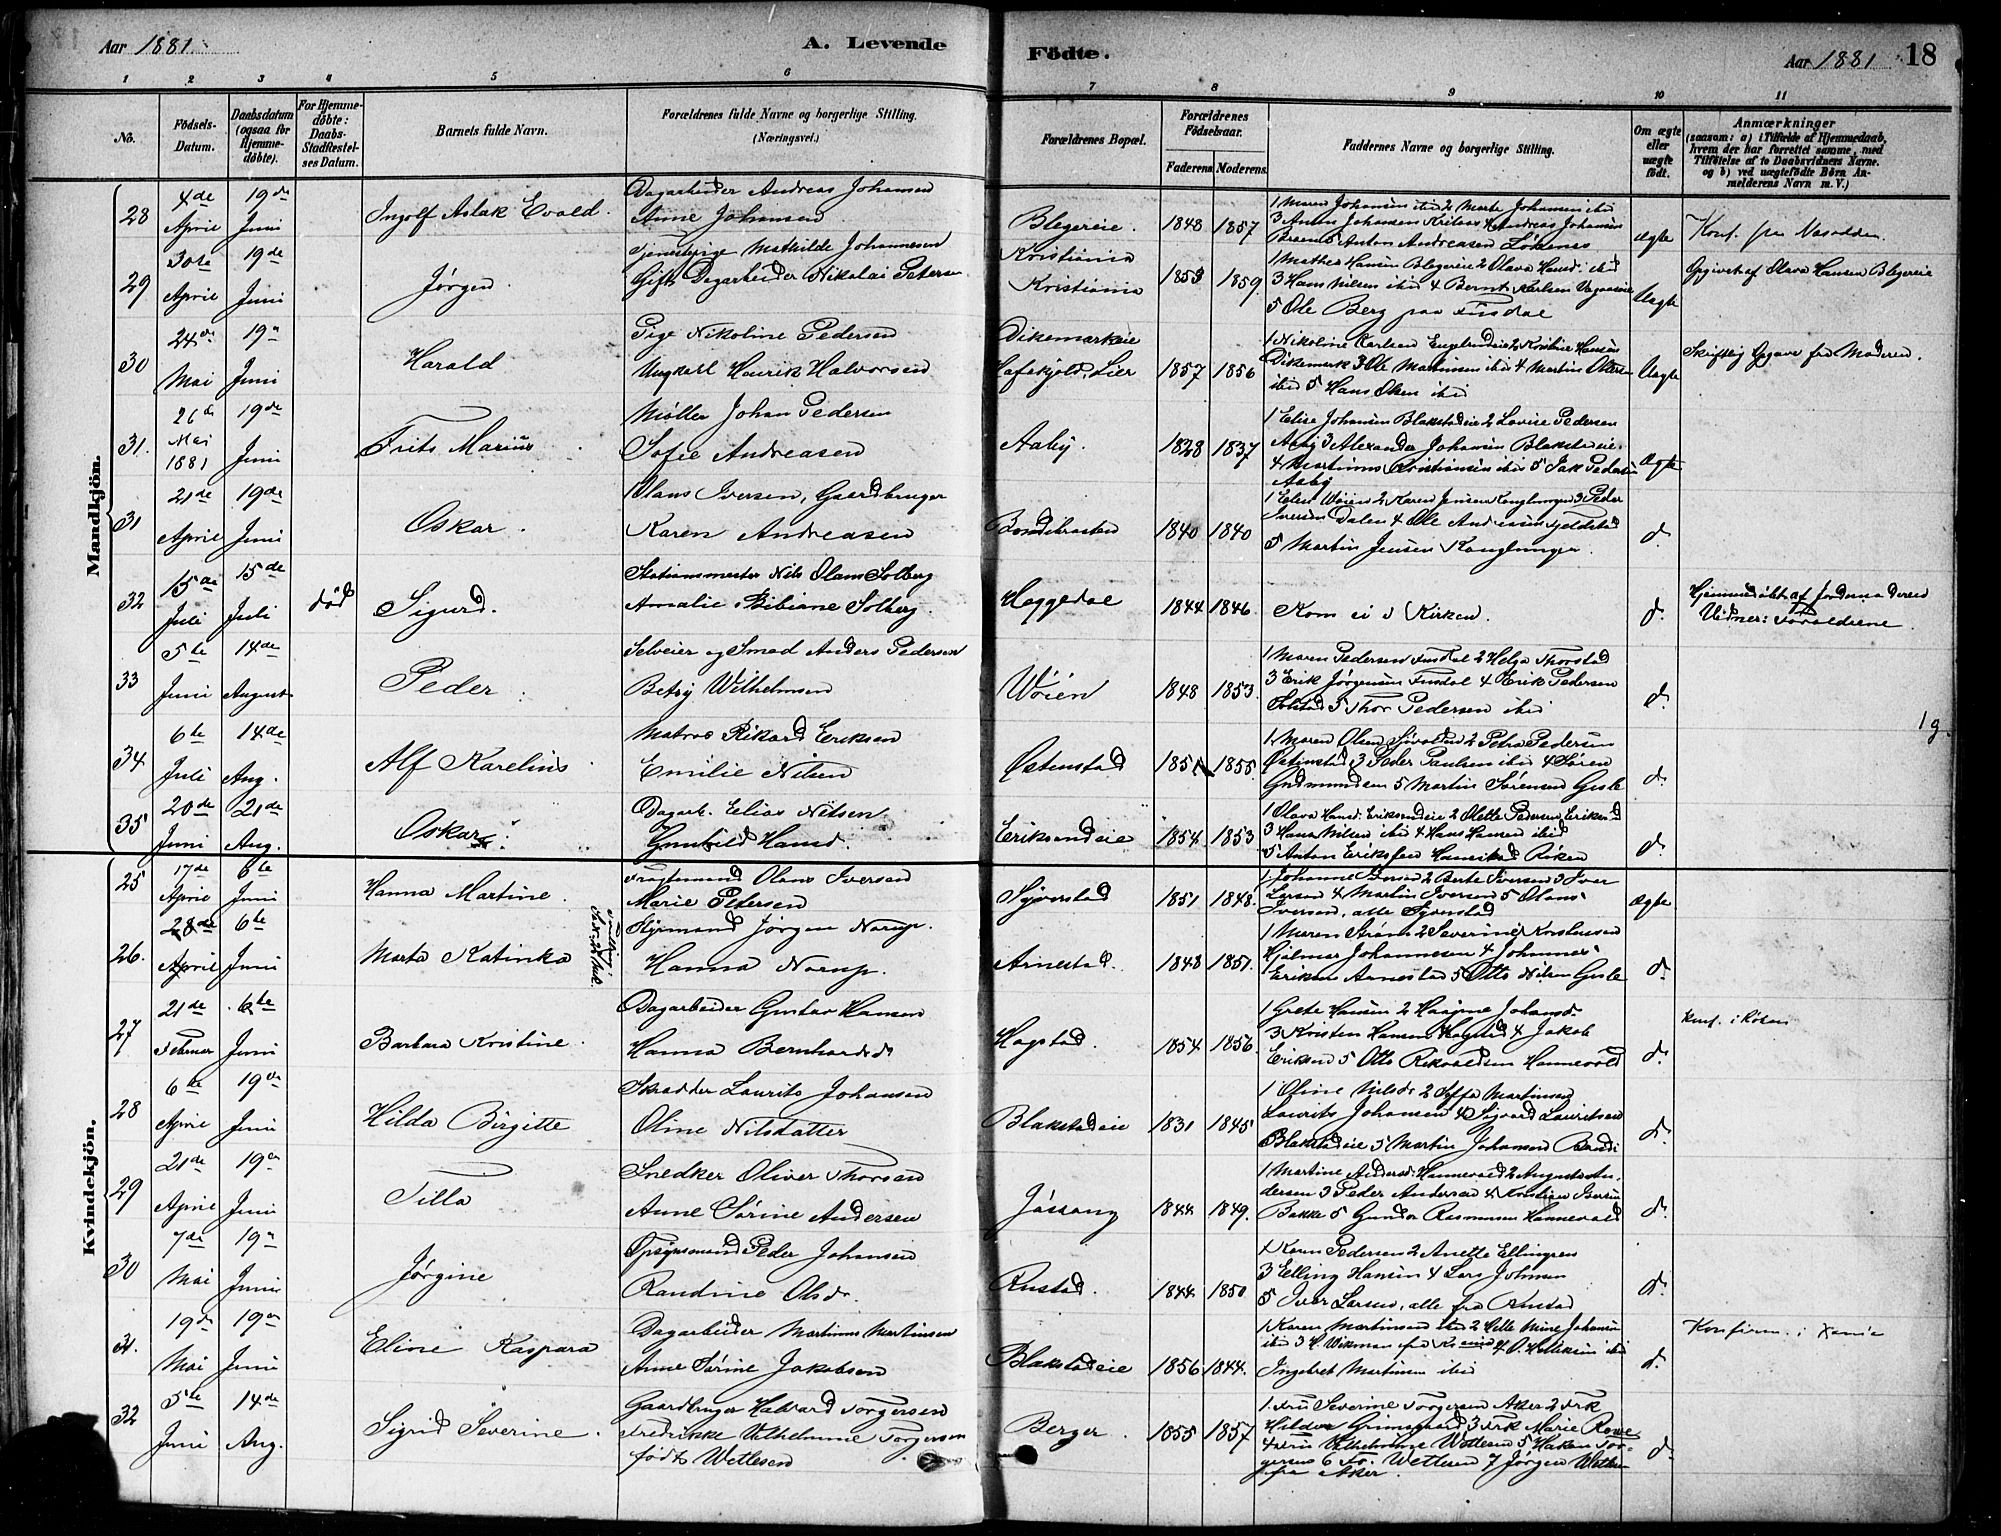 Aar 1881. A. Levende Födte. Aar 1881 18
1 2 3 4 5 6 7 8 9 10 11
No. Födsels-Datum. Daabsdatum (ogsaa for Hjemmedöbte). For Hjemmedöbte: Daabs-Stadfæstelses Datum. Barnets fulde Navn. Forældrenes fulde Navne og borgerlige Stilling. (Næringsvei.) Forældrenes Bopæl. Forældrenes Födselsaar. Faderens. Moderens. Faddernes Navne og borgerlige Stilling. Om ægte eller uægte födt. Anmærkninger (saasom: a) i Tilfælde af Hjemmedaab, hvem der har forrettet samme, med Tilföielse af to Daabsvidners Navne, og b) ved uægtefödte Börn Anmelderens Navn m. V.)
Mandkjön.
28 4de April 19de Juni Ingolf Aslak Evald. Dagarbeider Andreas Johansen
Anne Johansen Blegereie. 1848 1857 1 Maren Johansen ibid 2 Marte Johansen ibid
3 Anton Johansen Andreas Johansen
Anton Andreasen Lökenes ægte Konf. fra Nesodden.
29 30te April 19de Juni Jørgen Tjenestepige Mathilde Johannesen
Gift Dagarbeider Nikolai Petersen Kristiania
Kristiania 1853 1859 1 Mathea Hansen Blegereie 2 Olava Hansd. ibid
3 Hans Nilsen ibid 4 Bernt Karlsen
5 Ole Berg paa Fusdal Uægte Opgivet af Olava Hansen Blegereie
30 24de Mai 19de Juni Harald Pige Nikoline Pedersen
Ungkarl Henrik Halvorsen Dikemarkeie
Lier 1857 1856 1 Nikoline Karlsen 2 Kristine Hansen
Dikemark 3 Ole Martinsen ibid 4 Martin Olsen
ibid 5 Hans Olsen ibid Uægte Skriftlig Opgave fra Moderen.
31. 26de Mai 1881 19de Juni Frits Marius Møller Johan Pedersen
Sofie Andreasen Aaby. 1828 1837 1 Elise Johansen Blakstadeie 2 Lovise Pedersen
Aaby 3 Alexander Johansen Blakstadeie
4 Martinus Kristiansen ibid 5 Isak Pedersen
Aaby ægte
31 21de April 19de Juni Oskar. Olaus Iversen, Gaardbruger
Karen Andreasen Bondibraaten 1840 1840 1 Elen Wøien 2 Karen Jensen Konglungen 3 Peder
Iversen Dalen 4 Ole Andresen
5 Martin Jensen Konglungen. d.
32 15de Juli 15de Juli død Sigurd. Stationsmester Nils Olaus Solberg
Amalie Bibiane Solberg. Heggedal 1844 1846 Kom ei i Kirken. d. Hjemmedøbt af Jordemoderen
Vidner: Forældrene
33 5te Juni 14de August Peder Selveier og Smed Anders Pedersen
Betsy Wilhelmsen Wøien 1848 1853. 1 Maren Pedersen Fusdal 2 Helga Thorstad
3 Erik Jørgensen Fusdal 4 Erik Pedersen
Solstad 5 Thor Pedersen ibid d.
34 6te Juli 14de Aug. Alf Karelius Matros Rikard Eriksen
Emilie Nilsen Østenstad 1851 1855. 1 Maren Olsen 2 Petra Pedersen
Østenstad 3 Peder Paulsen ibid 4 Søren
Gudmundsen 5 Martin Sørensen Gisle d. 1 g.
35 20de Juni 21de Aug. Oskar. Dagarb. Elias Nilsen
Gunhild Hansd. Eriksendeie 1854 1853 1 Olava Hansd. Eriksendeie 2 Olette Pedersen
3 Hans Nilsen ibid 4 Hans Hansen ibid
5 Anton Eriksen Røken d.
Kvindekjön.
25 17de April 6te Juni Hanna Martine. Fragtemand Olaus Iversen
Marie Pedersen Syverstad 1851 1848. 1 Johanne 2 Berte Iversen 3 Iver
Larsen 4 Martin Iversen 5 Olaus
Iversen, alle Syverstad ægte.
26. 28de April 6te Juni Marta Katinka Styrmand Jørgen Norup.
Hanna Norup. Arnestad. 1848 1851. 1 Maren Strøm 2 Severine Kristensen
Hjalmar Johannesen 4 Johannes
Eriksen Arnestad 5 Otto Nilsen Gisle d.
27 21de Februar 6te Juni Barbara Kristine. Dagarbeider Gustav Hansen
Hanna Bernhardsd. Hogstad. 1854 1856. 1 Grete Hansen 2 Johansd.
3 Kristen Hansen Hogstad 4 Jakob
Eriksen 5 Otto Rikvaldsen Hannevold d. Konf. i Røken
28 6te April 19de Juni Hilda Birgitte Skrædder Laurits Johansen
Oline Nilsdatter Blakstadeie 1831 1845 1 Oline Nilsd. 2 Martinsen
Laurits Johansen 4 Sigvard Lauritsen
Blakstadeie 5 Martin Johansen Bondi d.
29 21de April 19de Juni Tilla Snedker Oliver Thorsen
Anne Sørine Andersen Jøssang 1844 1849. 1 Martine Andersd. Hannevold 2 Augusta An-
dersen 3 Peder Andersen 4 Kristian Iversen
Bakke 5 Gunder Rasmussen Hannevold d.
30 7de Mai 19de Juni Jørgine Opsynsmand Peder Johansen
Randine Olsd. Rustad. 1844 1850 1 Karen Pedersen 2 Anette Ellingsen
3 Elling Hansen 4 Lars Johnsen
5 Iver Larsen, alle fra Rustad d.
31. 19de Mai 19de Juni Eline Kaspara Dagarbeider Martinus Martinsen
Anne Sørine Jakobsen Blakstadeie 1856 1844. 1 Karen Martinsen ibid 2 Helle Mine Johansen
ibid 3 H. Wekman fra
Ingebret Martinsen ibid d. Konfirm. i Xania
32 5te Juni 14de Aug. Sigrid Severine. Gaardbruger Halvard Torgersen
Fredrikke Vilhelmine Torgersen
født Wettesen Berger. 1855 1857 1. Fru Severine Torgersen Aker 2 Frk
Hilda Grimsgaard 3 Frk Marie
4 Fru Vilhelmine Wettesen 5 Hakon Tor-
gersen 6 Fr. Wettesen 7 Jørgen Wettesen
fra Aker. d.